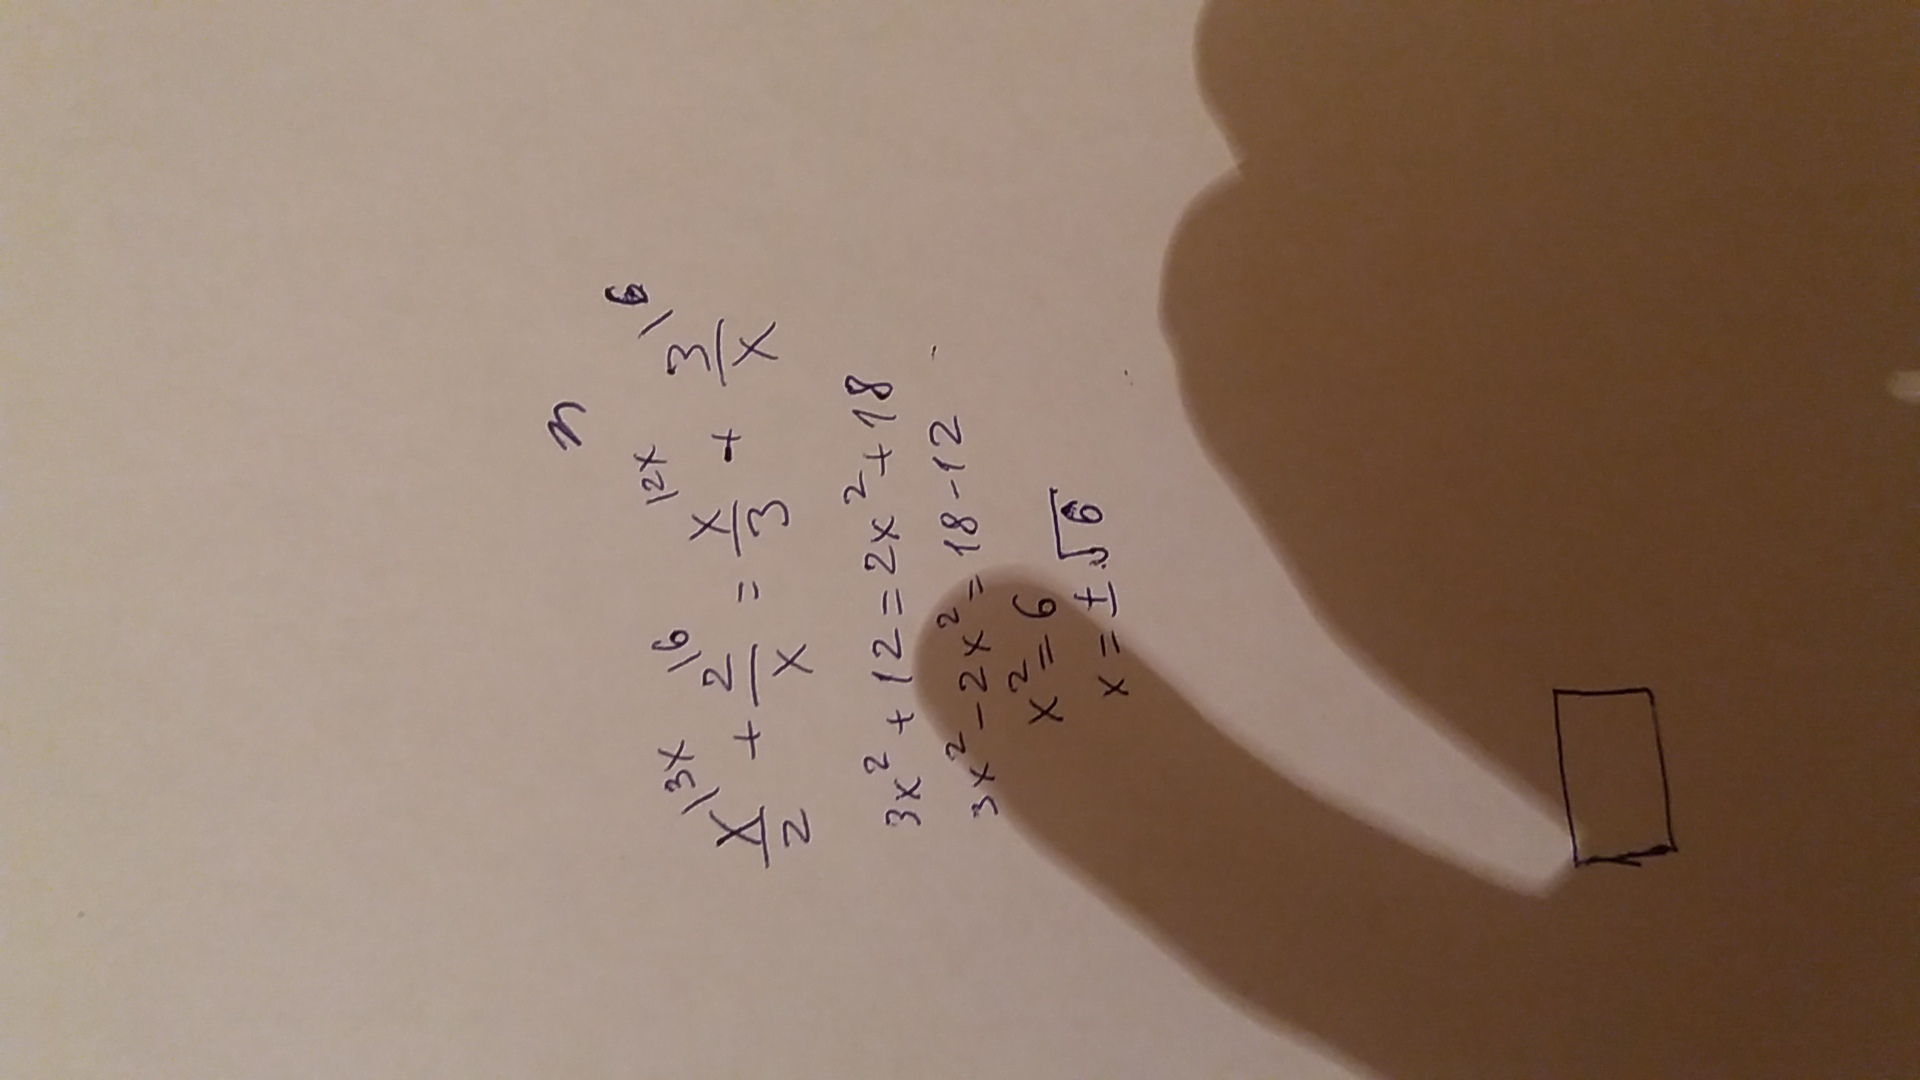 n
x/2 \3x + 2/x \6 = x/3 \2x + 3/x \6
3x² + 12 = 2x² + 18
3x² - 2x² = 18 - 12
x² = 6
x = ±√6